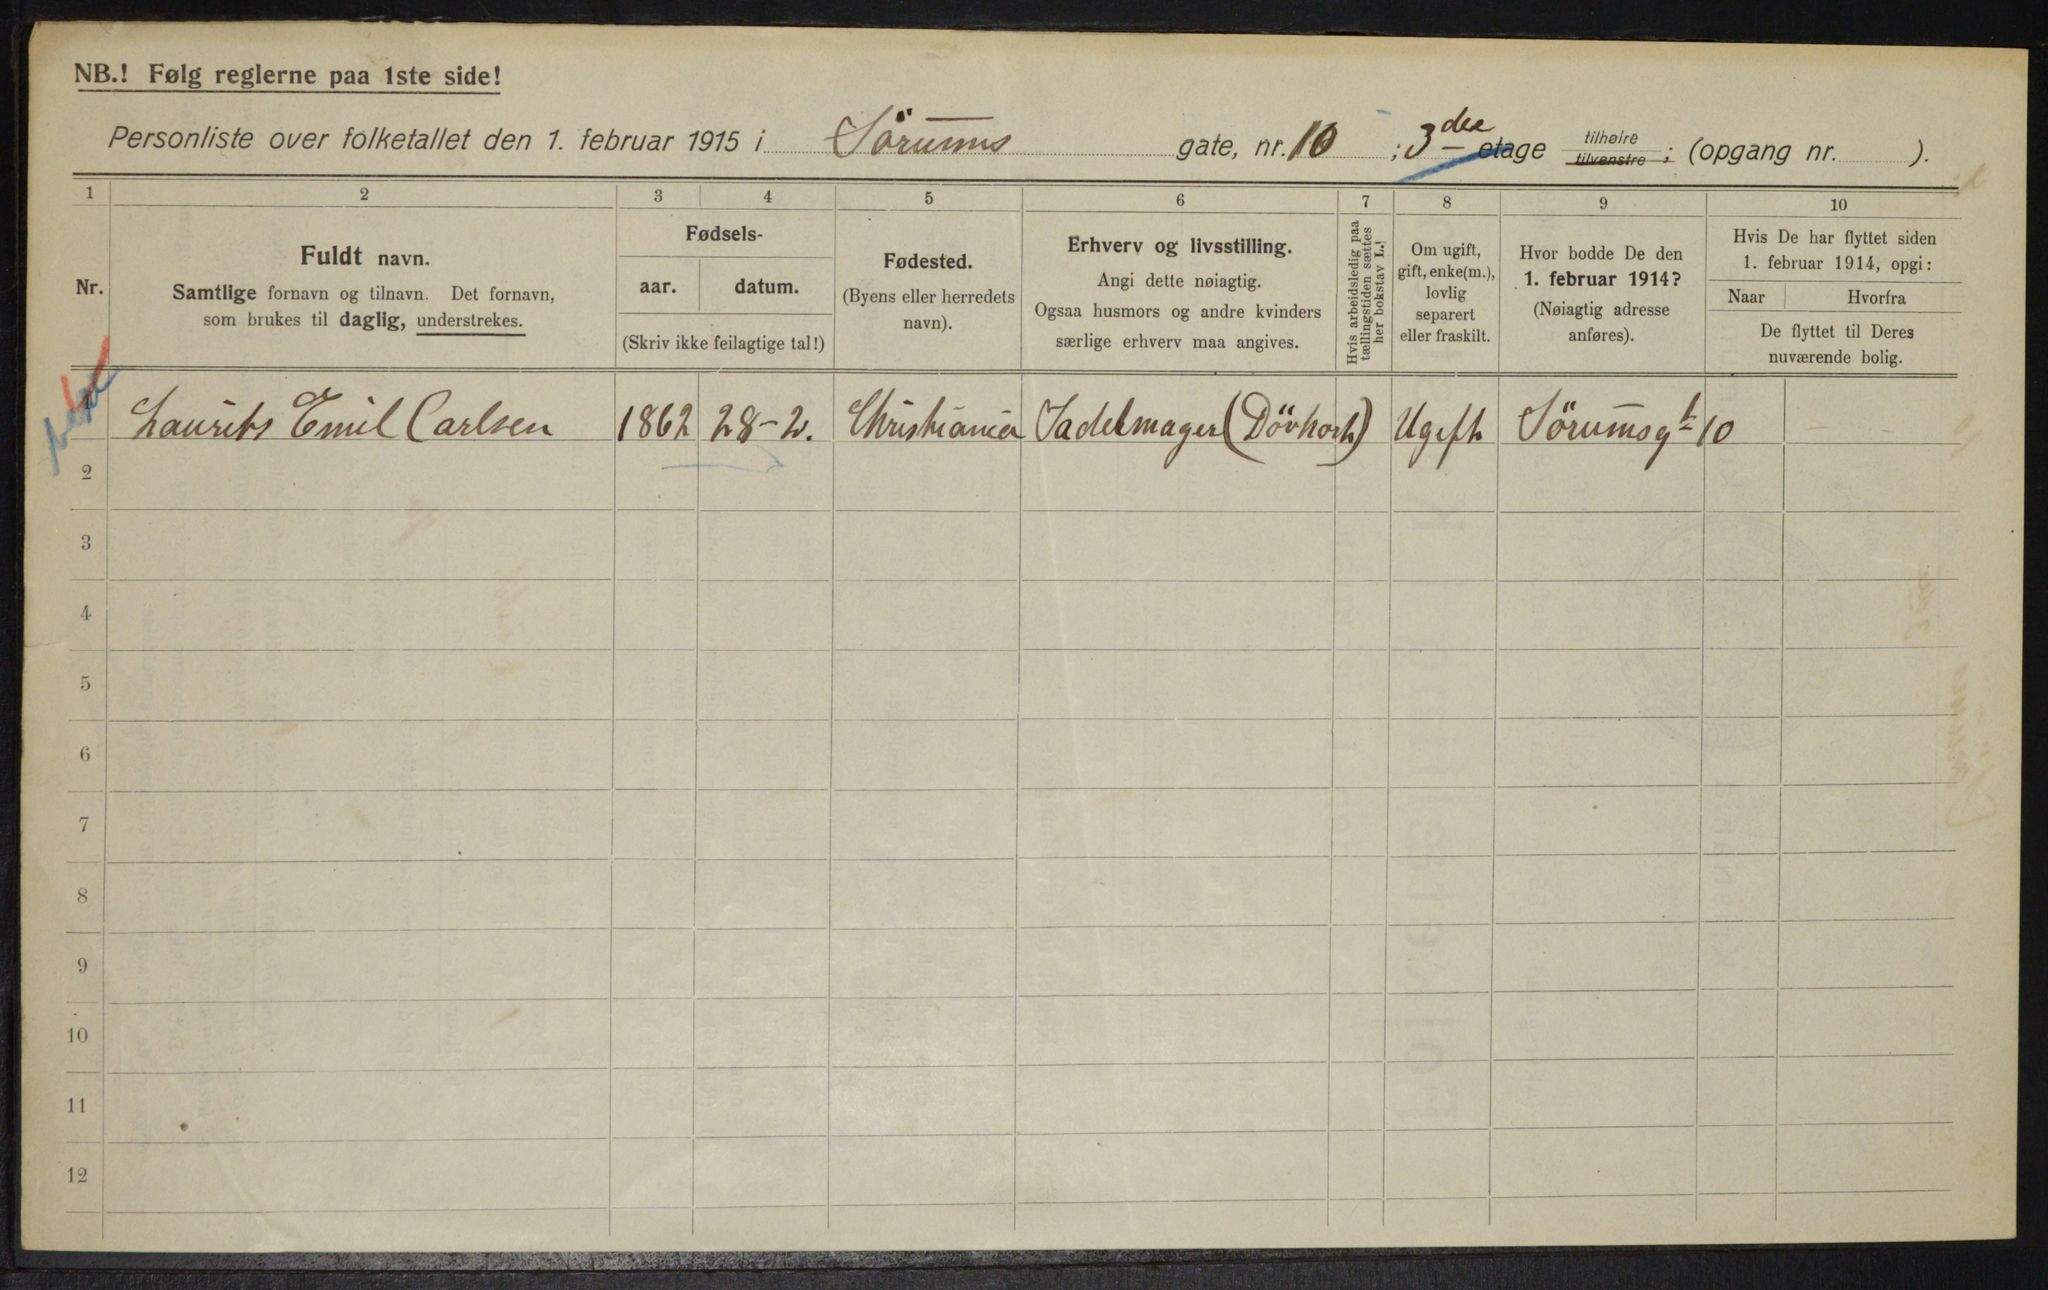 NB.! Følg reglerne paa 1ste side!
Personliste over folketallet den 1. februar 1915 i Sörums gate, nr. 10 ; 3 dee etage tilhøire tilvenstre ; (opgang nr. ).
1 2 3 4 5 6 7 8 9 10
Nr.
Fuldt navn.
Samtlige fornavn og tilnavn. Det fornavn,
som brukes til daglig, understrekes.
Fødsels-
aar. datum.
(Skriv ikke feilagtige tal!)
Fødested.
(Byens eller herredets
navn).
Erhverv og livsstilling.
Angi dette nøiagtig.
Ogsaa husmors og andre kvinders
særlige erhverv maa angives.
Hvis arbeidsledig paa
tællingstiden sættes
her bokstav L.!
Om ugift,
gift, enke(m.),
lovlig
separert
eller fraskilt.
Hvor bodde De den
1. februar 1914?
(Nøiagtig adresse
anføres).
Hvis De har flyttet siden
1. februar 1914, opgi:
Naar Hvorfra
De flyttet til Deres
nuværende bolig.
1 Laurits Emil Carlsen 1862 28-2. Christiania Sadelmager (Dövhort) Ugift Sörumsgt 10 — —
2
3
4
5
6
7
8
9
10
11
12